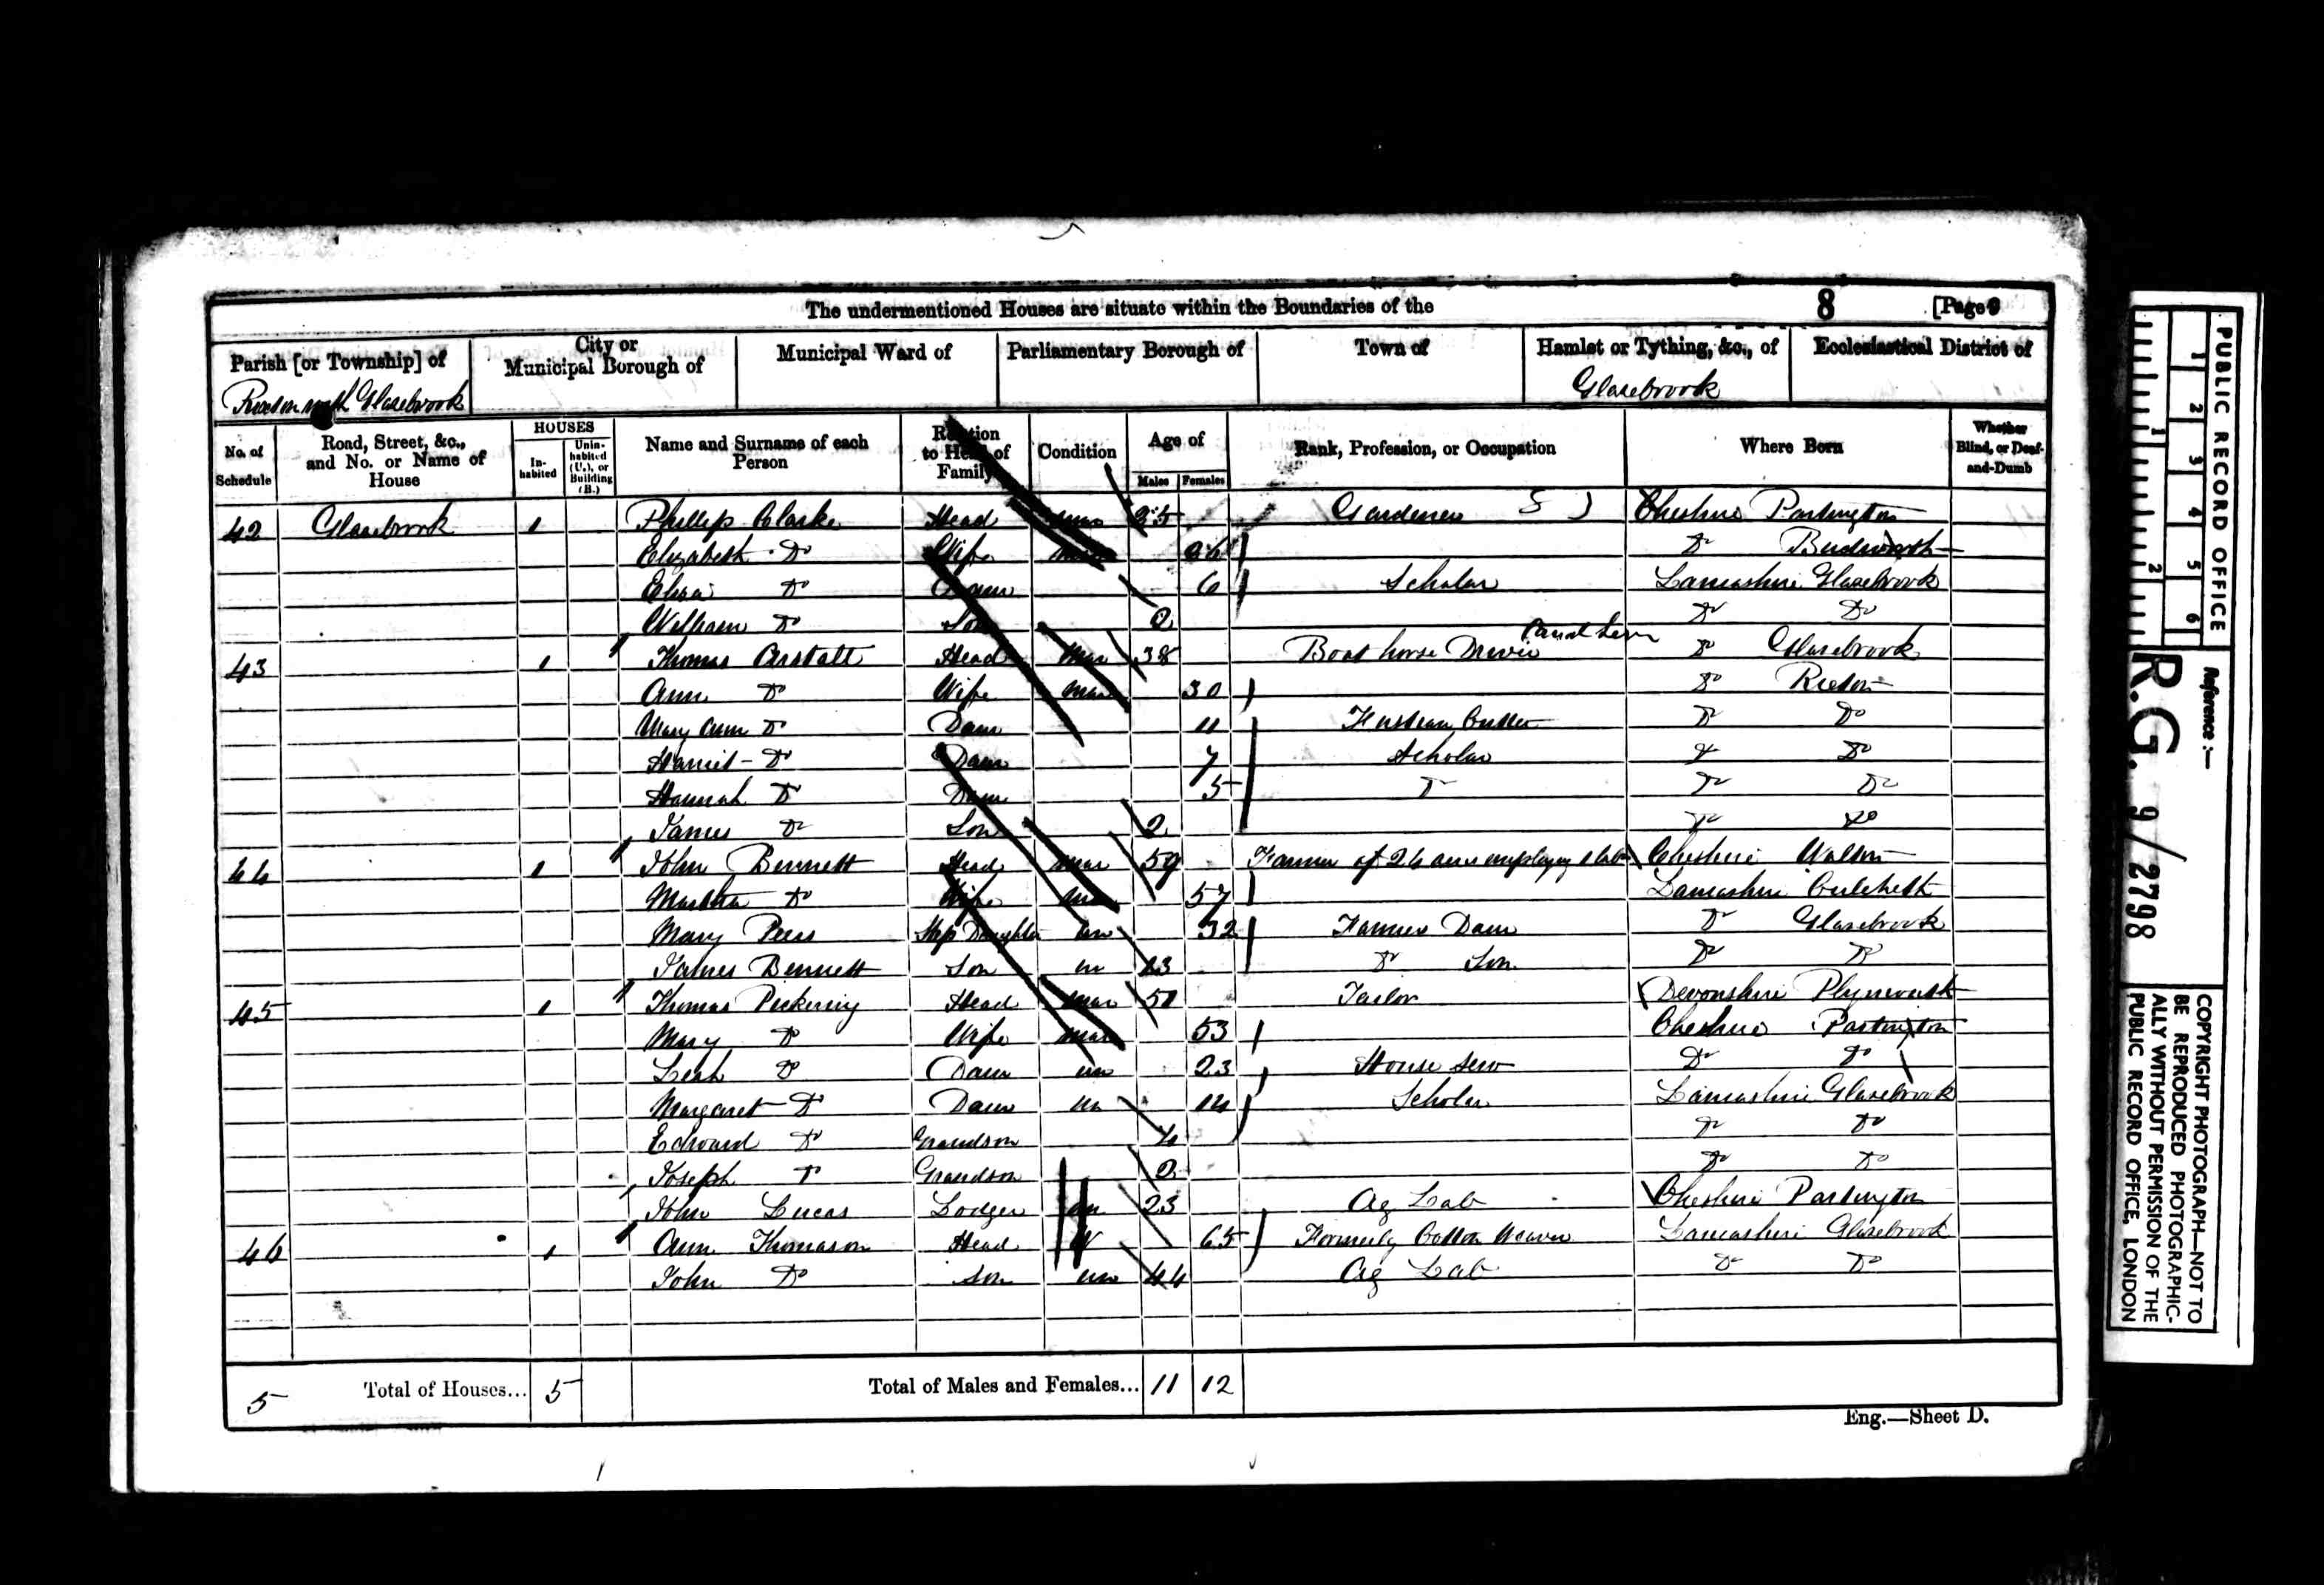 The undermentioned Houses are situate within the Boundaries of the 8 [Page 9
Parish [or Township] of City or Municipal Borough of Municipal Ward of Parliamentary Borough of Town of Hamlet or Tything, &c., of Ecclesiastical District of
Rixton with Glazebrook Glazebrook
No. of Schedule Road, Street, &c., and No. or Name of House HOUSES Inhabited Uninhabited (U.), or Building (B.) Name and Surname of each Person Relation to Head of Family Condition Age of Males Females Rank, Profession, or Occupation Where Born Whether Blind, or Deaf-and-Dumb
42 Glazebrook 1 Phillip Clarke Head Mar 35 Gardener Cheshire Partington
Elizabeth Do Wife Mar 36 Do Budworth
Eliza Do Daur 6 Scholar Lancashire Glazebrook
William Do Son 2 Do Do
43 1 Thomas Head Mar 38 Boat horse Driver Do Glazebrook
Ann Do Wife Mar 30 Do Rixton
Mary Ann Do Daur 11 Fustian Cutter Do Do
Harriet Do Daur 7 Scholar Do Do
Hannah Do Daur 5 Do Do Do
James Do Son 2 Do Do
44 1 John Bennett Head Mar 59 Farmer of 26 acres employing 1 lab Cheshire Walton
Martha Do Wife Mar 57 Lancashire Culcheth
Mary Peers Step Daughter Un 32 Farmers Daur Do Glazebrook
James Bennett Son Un 23 Do Son Do Do
45 1 Thomas Pickering Head Mar 51 Tailor Devonshire Plymouth
Mary Do Wife Mar 53 Cheshire Partington
Leah Do Daur Un 23 House Serv Do Do
Margaret Do Daur Un 14 Scholar Lancashire Glazebrook
Edward Do Grandson 4 Do Do
Joseph Do Grandson 2 Do Do
John Lucas Lodger Un 23 Ag Lab Cheshire Partington
46 1 Ann Thomason Head W 65 Formerly Cotton Weaver Lancashire Glazebrook
John Do Son Un 44 Ag Lab Do Do
5 Total of Houses... 5 Total of Males and Females... 11 12
Eng.—Sheet D.
PUBLIC RECORD OFFICE
1 2 3 4 5 6
1 2
Reference :—
R.G. 9/2798
COPYRIGHT PHOTOGRAPH—NOT TO
BE REPRODUCED PHOTOGRAPHIC-
ALLY WITHOUT PERMISSION OF THE
PUBLIC RECORD OFFICE, LONDON